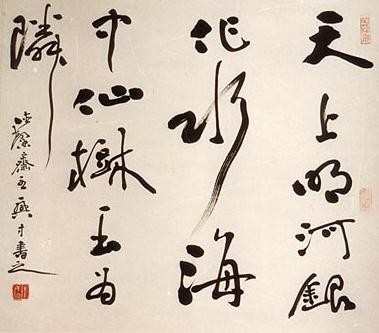 天上明河銀
作水海
中仙樹玉為
隣
潔齋興才書之